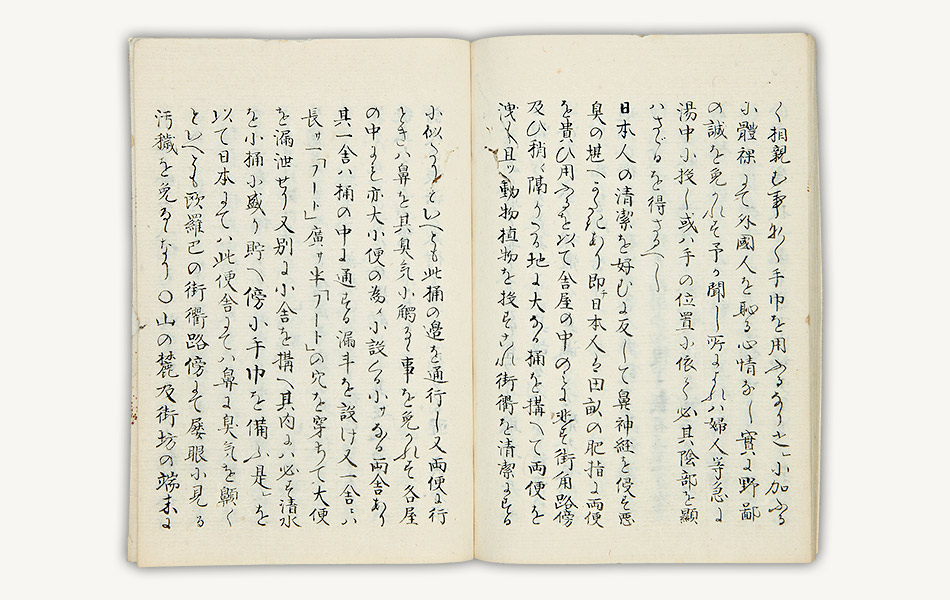 く相親む事少く手巾を用ふるなりと」加ふる
に體裸にて外國人を恥る心情なし實に野鄙
の誠を免かれす予か聞し所によれハ婦人等急に
湯中に投し或ハ手の位置に依て必其陰部を顯
ハさゞるを得さるへし
日本人の清潔を好むに反して鼻神經を侵す悪
臭の堪へかたきあり即日本人ハ田畝の肥指に両便
を貴ひ用ふるを以て舎屋の中のミに非す街角路傍
及ひ稍隔りたる地に大なる桶を構へて両便を
洩し且ツ動物植物を投すこれ街衢を清潔にする
に似たりといへとも此桶の邊を通行し又両便に行
ときハ鼻を其臭気に觸るゝ事を免かれす各屋
の中にも亦大小便の為に設くる小サなる両舎あり
其一舎ハ桶の中に通する漏斗を設け又一舎ニハ
長サ一「フート」廣サ半「フート」の穴を穿ちて大便
を漏泄せり又別に小舎を構へ其内にハ必す清水
を小桶に盛り貯へ傍に手巾を備ふ是」を
以て日本にてハ此便舎にてハ鼻に臭気を觸く
といへとも欧羅巴の街衢路傍にて屡眼に見る
汚穢を免るゝなり〇山の麓及街坊の端末に